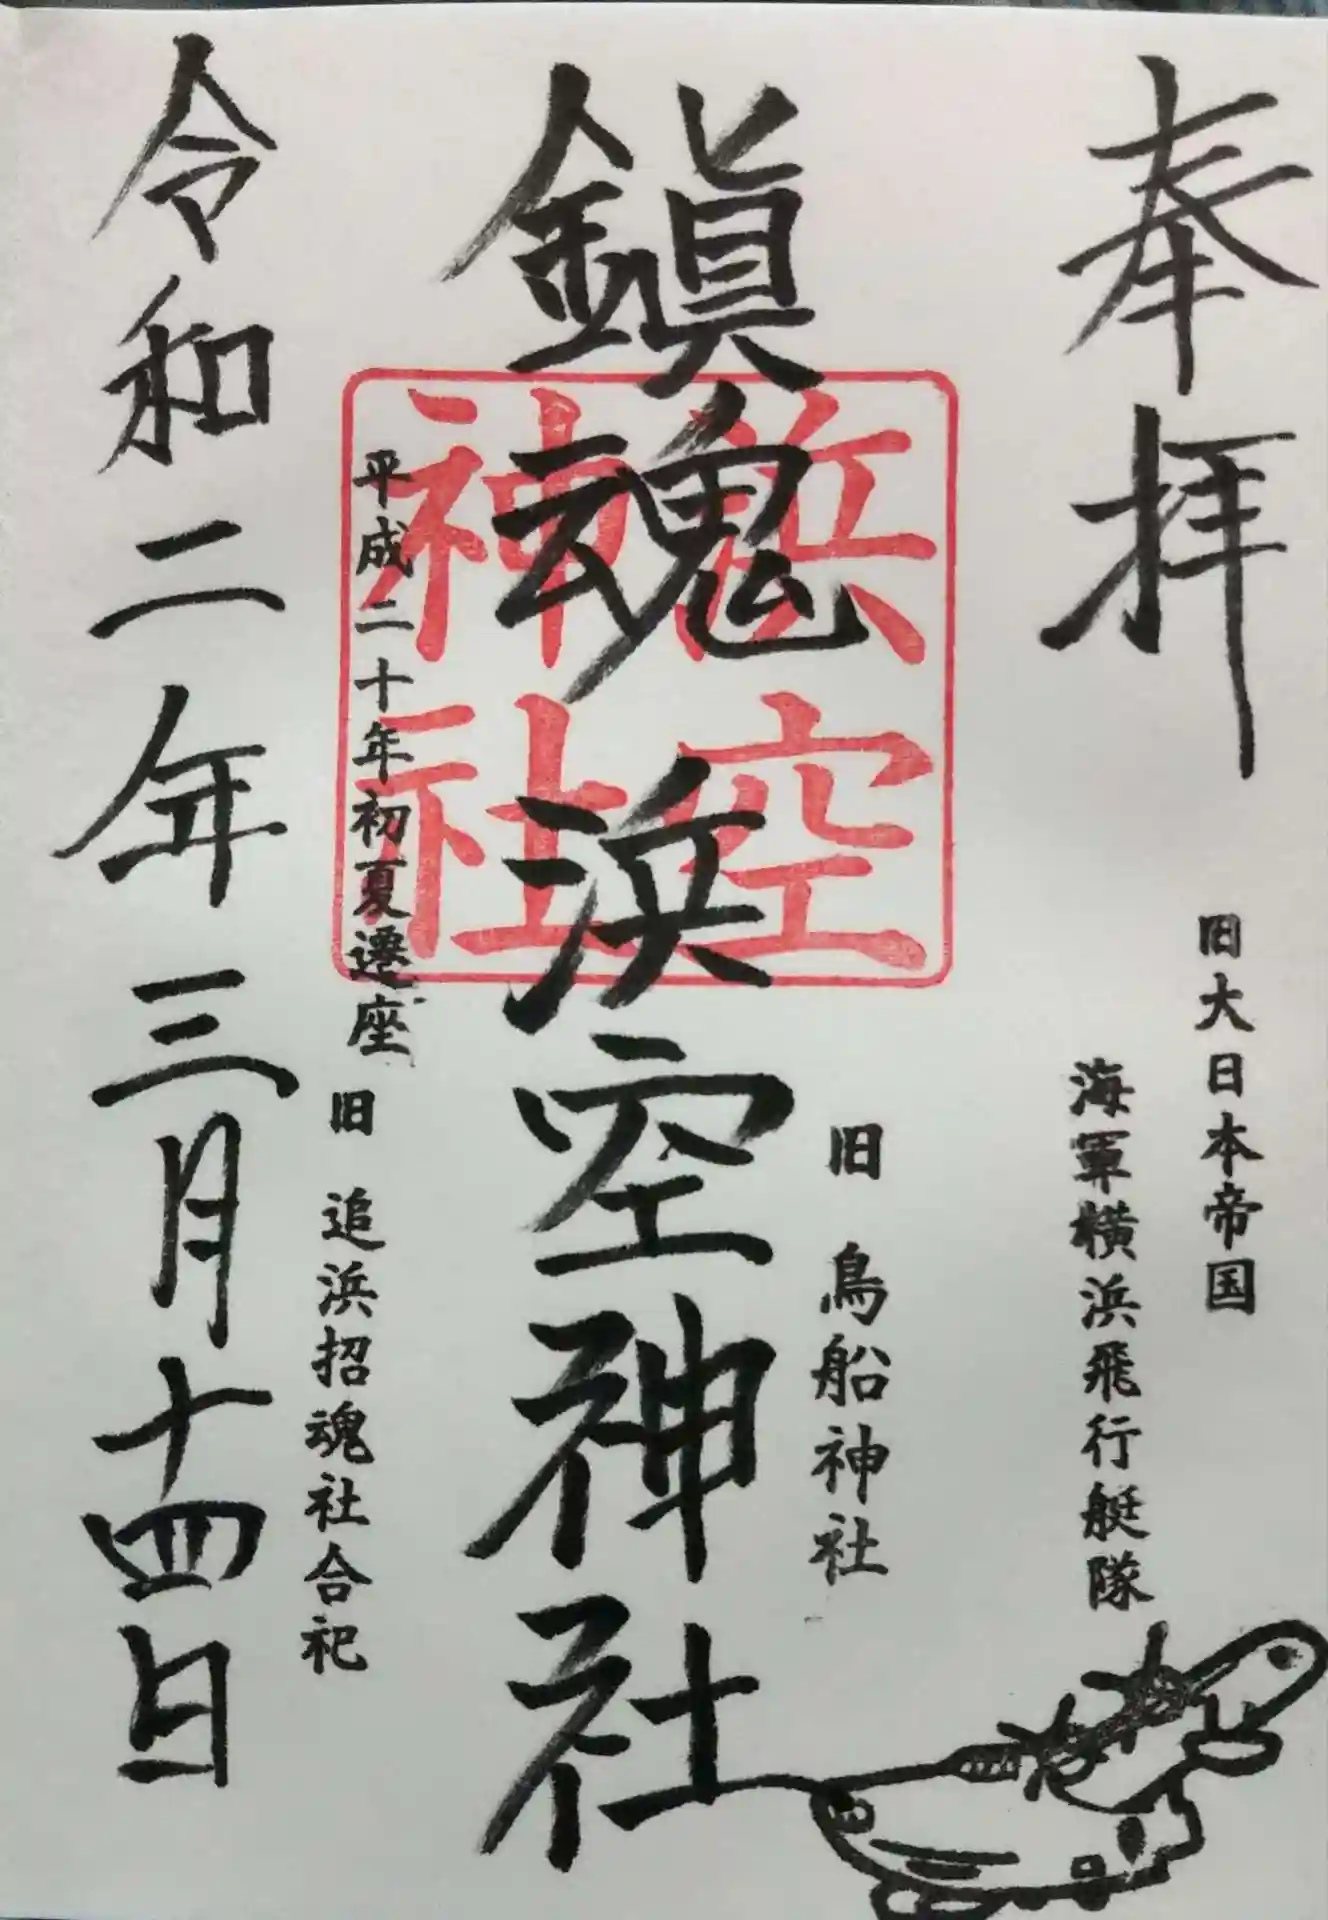 奉拝
旧大日本帝国
海軍横浜飛行艇隊
旧 鳥船神社
鎭魂 浜空神社
浜空
神社
平成二十年初夏遷座
旧 追浜招魂社合祀
令和二年三月十四日